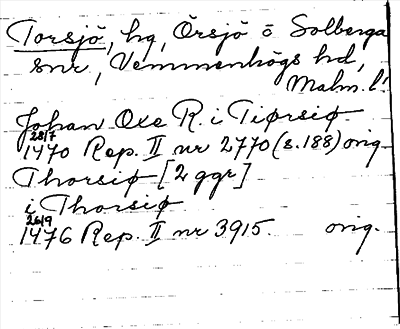 Torsjö, hg, Örsjö o Solberga
snr, Vemmenhögs hd,
Malm. l.
Johan Oxe R. i Tiørsiø
28/7
1470 Rep. II nr 2770 (s. 188) orig.
Thorsiø [2 ggr]
i Thorsiø
26/9
1476 Rep. II nr 3915. orig.